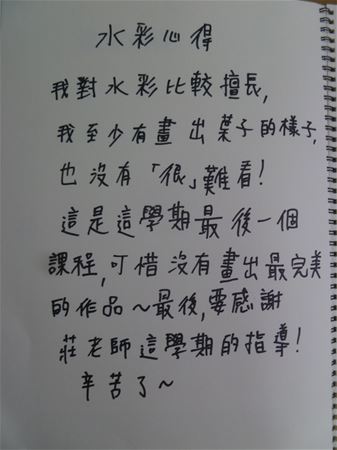 水彩心得
我對水彩比較擅長,
我至少有畫出葉子的樣子,
也沒有「很」難看!
這是這學期最後一個
課程,可惜沒有畫出最完美
的作品～最後,要感謝
莊老師這學期的指導!
辛苦了～